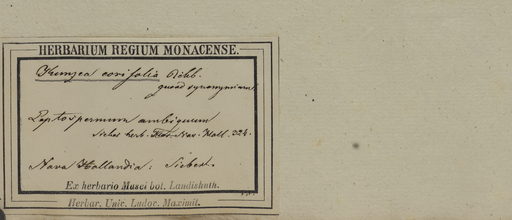 HERBARIUM REGIUM MONACENSE.
Kunzea corifolia Rchb.
quoad synonymiam
Leptospermum ambiguum
Sieber herb. Flor. Nov. Holl. 324.
Nova Hollandia: Sieber.
Ex herbario Musei bot. Landishuth.
Herbar. Univ. Ludov. Maximil.